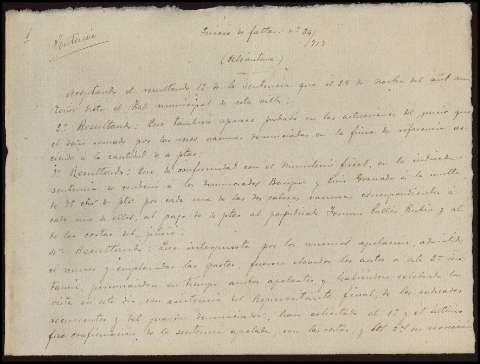 Sentencia
Juicio de faltas nº 34
1917
(Adsontana)
Aceptando el resultando 1º de la sentencia que el 28 de del año an
terior dictó el Tribl municipal de esta villa:
2º Resultando: Que también aparece probado en las actuaciones del juicio que
el daño causado por las reses vacunas denunciadas en la finca de referencia as
ciende a la cantidad de 2 ptas.
3º Resultando: Que de conformidad con el Ministerio fiscal, en la indicada
sentencia se condenó a los denunciados y Luis Granado a la multa
de 75 cts de pta por cada una de las dos cabezas vacunas correspondientes a
cada uno de ellos, al pago de 2 ptas al perjudicado Rubio y al
de las costas del juicio:
4º Resultando: Que interpuesta por los mismos apelación, admitido
el recurso y emplazadas las partes, fueron elevados los autos a esta 2ª ins
tancia, personándose en tiempo ambos apelantes y habiéndose celebrado la
vista en este día, con asistencia del Representante fiscal, de los indicados
recurrentes y del guarda denunciador, han solicitado el 1º y el último
fue confirmación de la sentencia apelada con las costas, y los